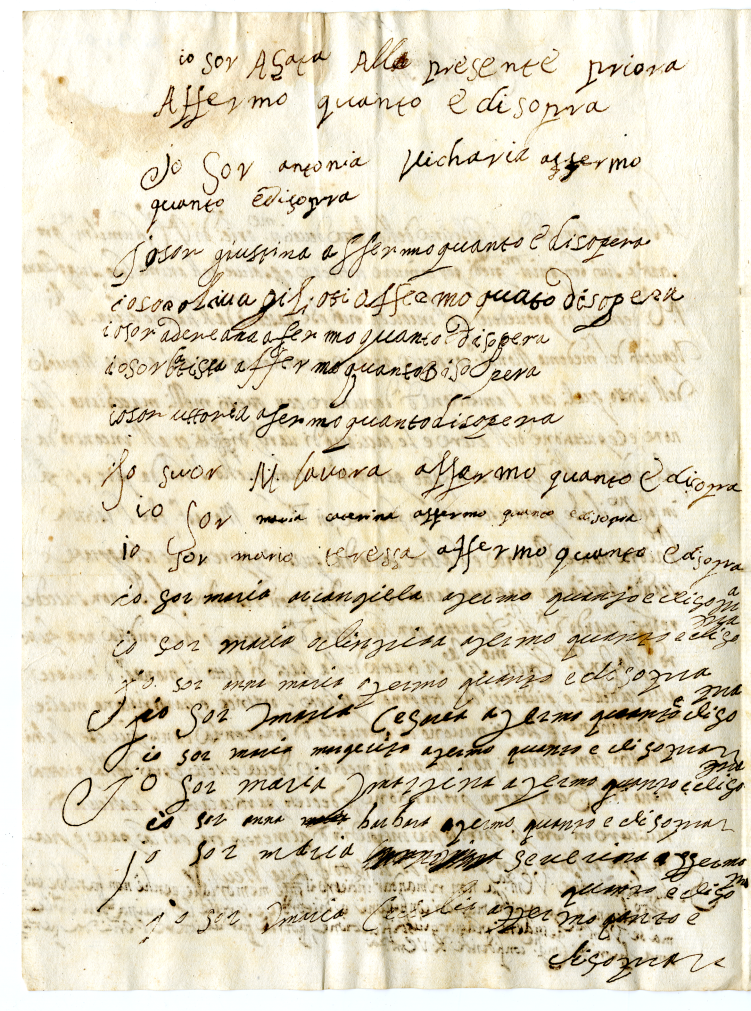 io sor Agata Alla presente priora
Affermo quanto e di sopra
Jo Sor antonia Vicharia affermo
quanto e disopra
Jo sor giustina affermo quanto e disopera
io sor oliva affermo quato disopera
io sor adereana afermo quanto disopera
io sor tista affermo quanto disopera
io sor uttoria afermo quanto disopera
Jo suor M laura affermo quanto è disopra
io Sor maria caterina affermo quanto e disopra
io Sor maria teressa affermo quanto e disopra
io sor maria arcangiela afermo quanto e disopra
io sor maria afermo quanto e disopra
io sor anna maria afermo quanto e disopra
io Sor maria Cesarea afermo quanto e disopra
io sor maria margerita afermo quanto e disopra
Jo Sor maria afermo quanto e disopra
io sor anna barbara afermo quanto e disopra
Jo sor maria severina affermo
quanto e disopra
io sor maria Cecilia affermo quanto e
disopra